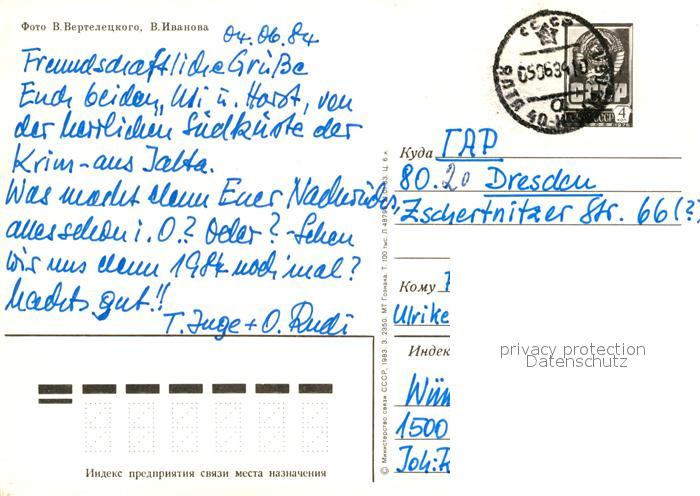 Фото В.Вертелецкого, В.Иванова
04.06.84
Freundschaftliche Grüße
Euch beiden, Uli u. Horst, von
der herrlichen Südküste der
Krim - aus Jalta.
Was macht denn Euer Nachwuchs,
alles schon i. O.? Oder? - Sehen
wir uns denn 1984 noch mal?
Machts gut!!
T. Inge + O. Rudi
СССР
05 06 84
СССР
4
коп
Куда ГДР
80.20 Dresden
Zschertnitzer Str. 66 (?)
Кому
Ulrike
Индекс
1500
privacy protection
Datenschutz
Индекс предприятия связи места назначения
© Министерство связи СССР, 1983. З. 2350. МТ Гознака. Т. 100 тыс.